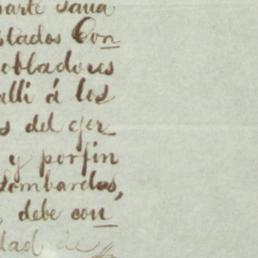 arte
stados Con
obladores
alli á los
s del ejer
y por fin
Lombardas,
, debe con
dad de